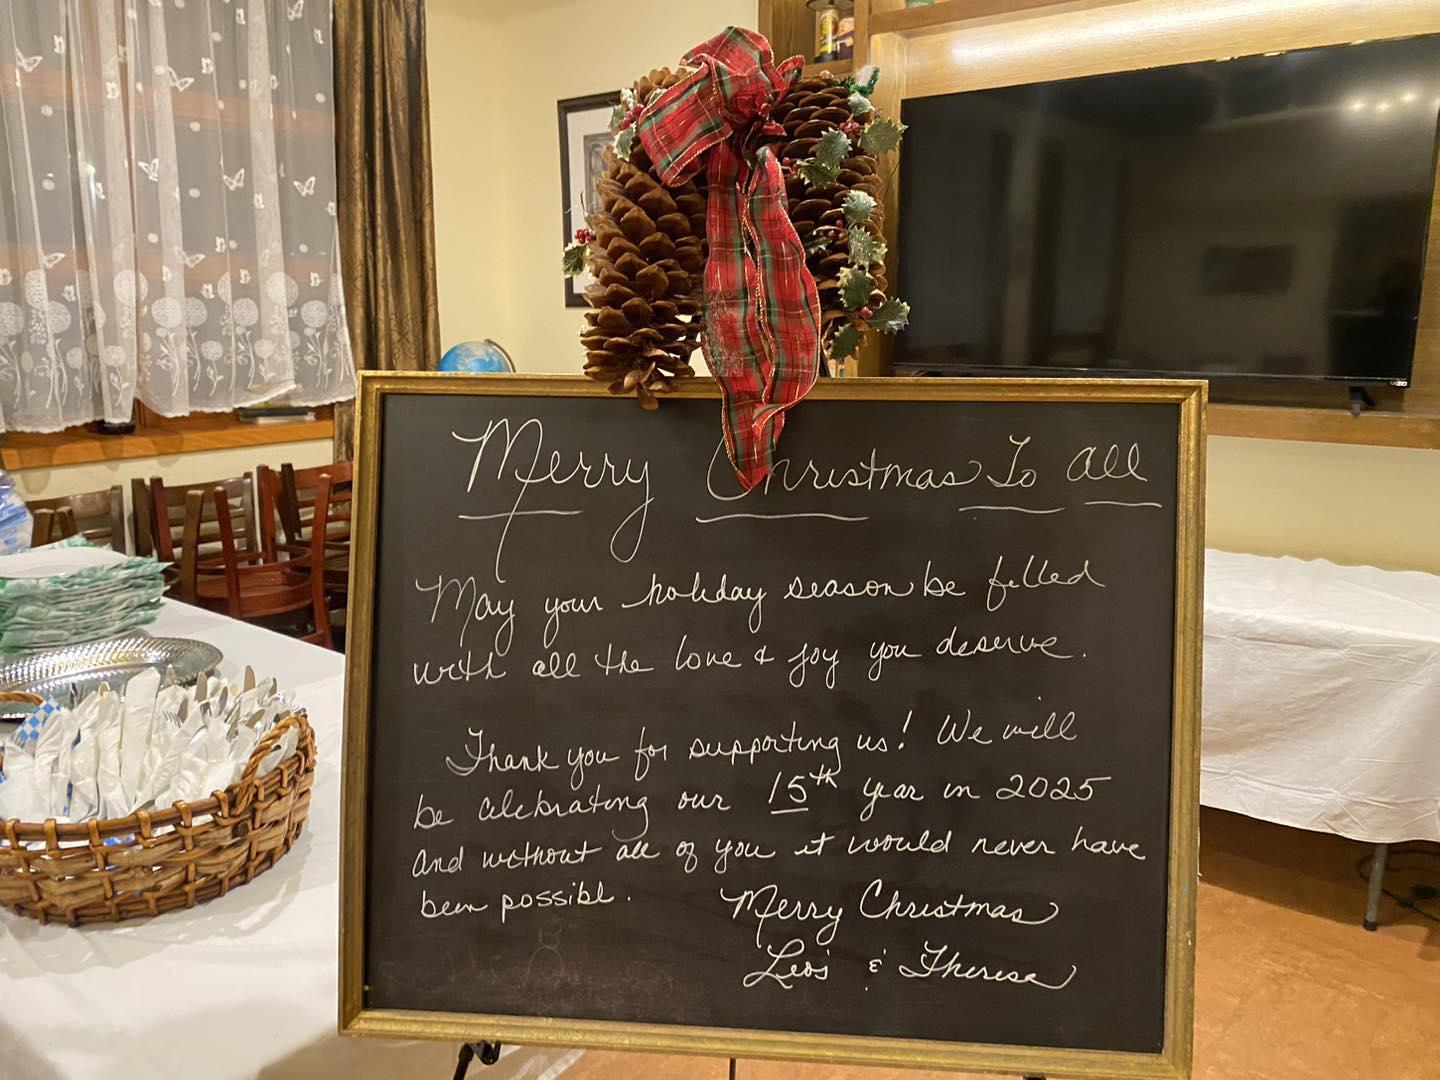 Merry Christmas To All
May your holiday season be filled
with all the love & joy you deserve.
Thank you for supporting us! We will
be celebrating our 15th year in 2025
and without all of you it would never have
been possible.
Merry Christmas
Leo's & Theresa
VIZIO